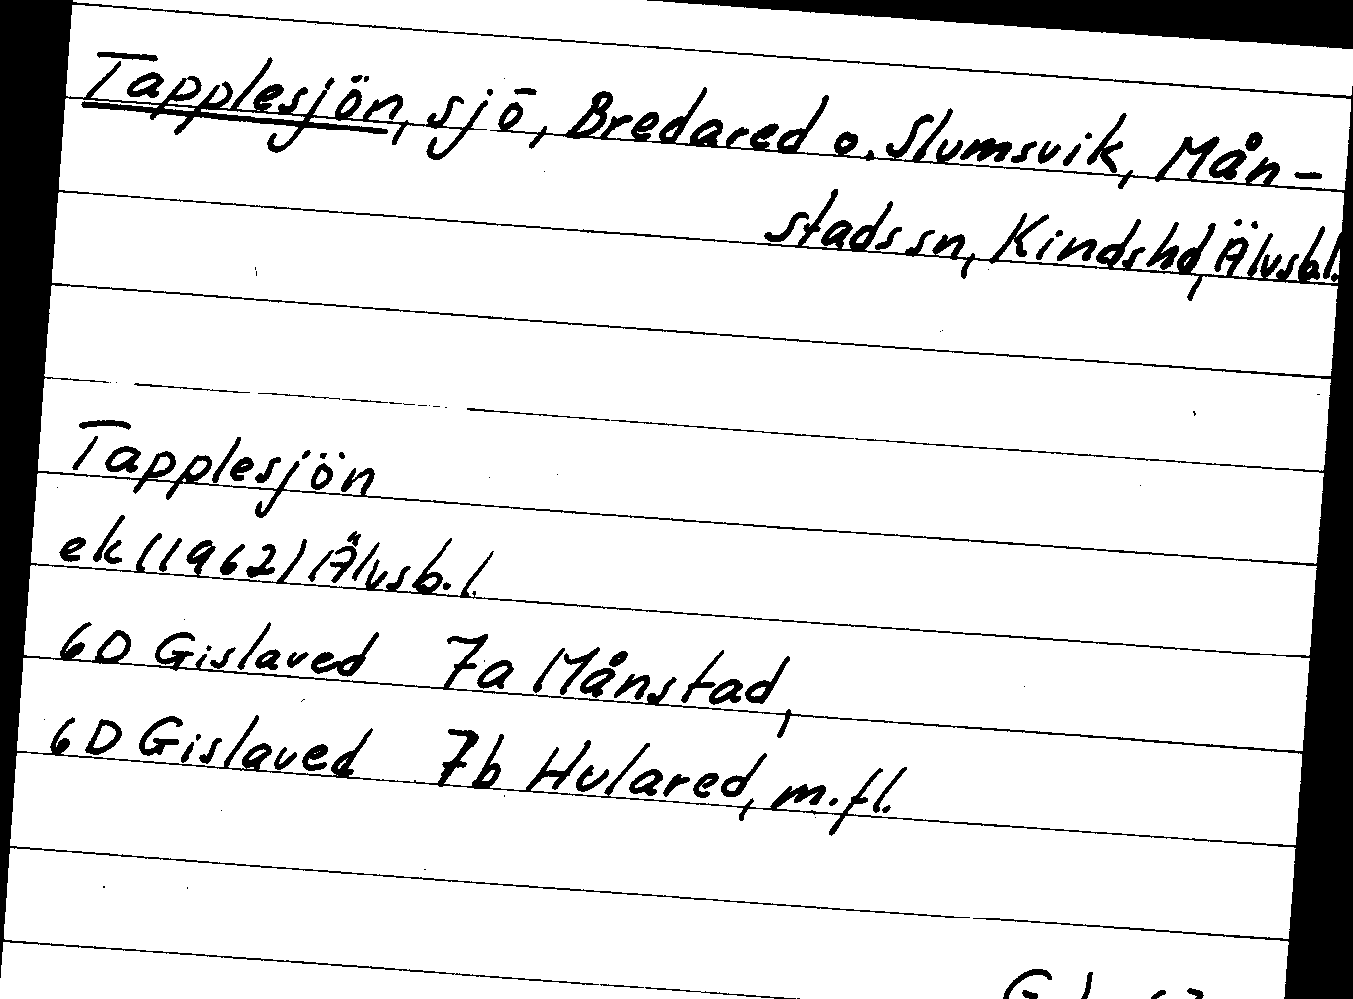 Tapplesjön, sjö, Bredared o. Slumsvik, Mån-
stads sn, Kinds hd, Älvsb.l.
Tapplesjön
ek (1962) Älvsb. l.
6D Gislaved 7a Månstad,
6D Gislaved 7b Hulared, m.fl.